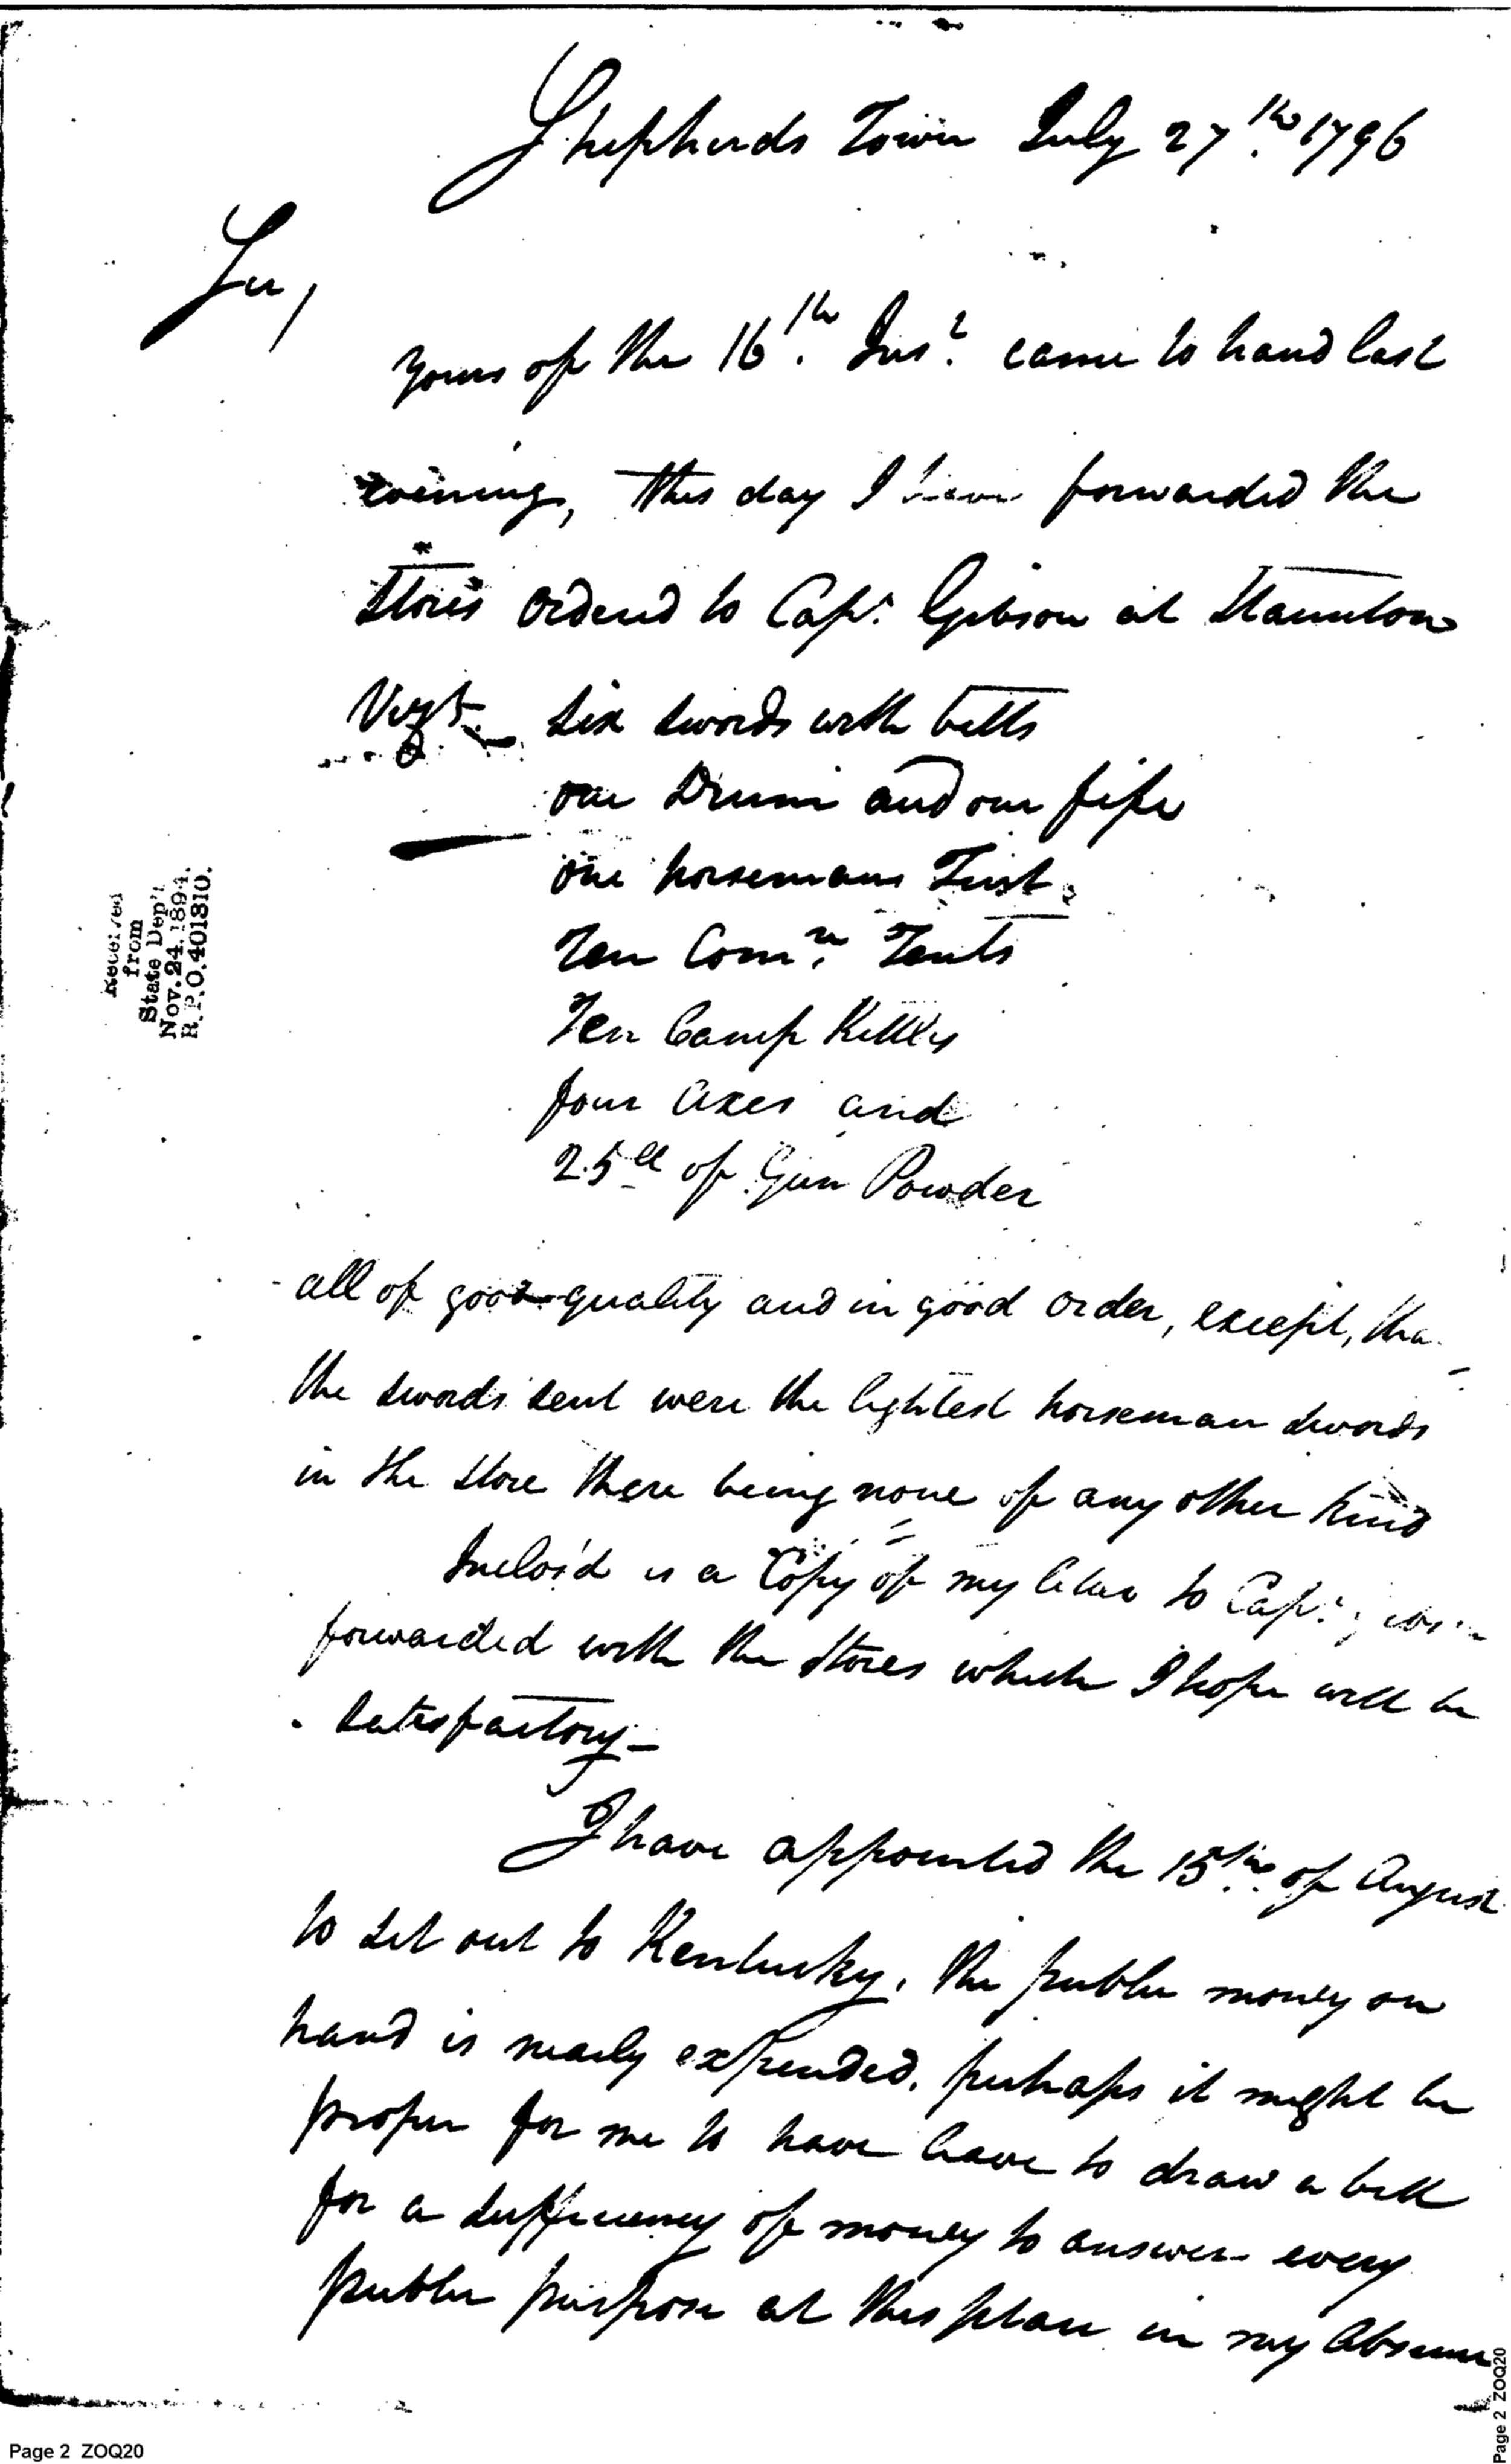 Shepherds Town July 27.th 1796
Sir,
yours of the 16.th Inst. came to hand last
evening, this day I have forwarded the
Stores ordered to Capt. Gibson at Staunton
Vizt. Six Swords with belts
one Drum and one fife
one horsemans Tent
Ten Comn. Tents
Ten Camp Kettles
four axes and
25ll of Gun Powder
all of good quality and in good order, except, tha
the Swords Sent were the lightest horseman Swords
in the Store there being none of any other kind
Inclos'd is a Copy of my letter to Capt.
forwarded with the Stores which I hope will be
Satisfactory-
I have appointed the 15.th of August
to Set out to Kentucky, the public money on
hand is nearly expended, perhaps it might be
proper for me to have leave to draw a bill
for a Sufficiency of money to answer every
public purpose at this place in my absence
Received
from
State Dep't
Nov. 24. 1894.
R.P.O. 401310.
Page 2 ZOQ20
Page 2 ZOQ20